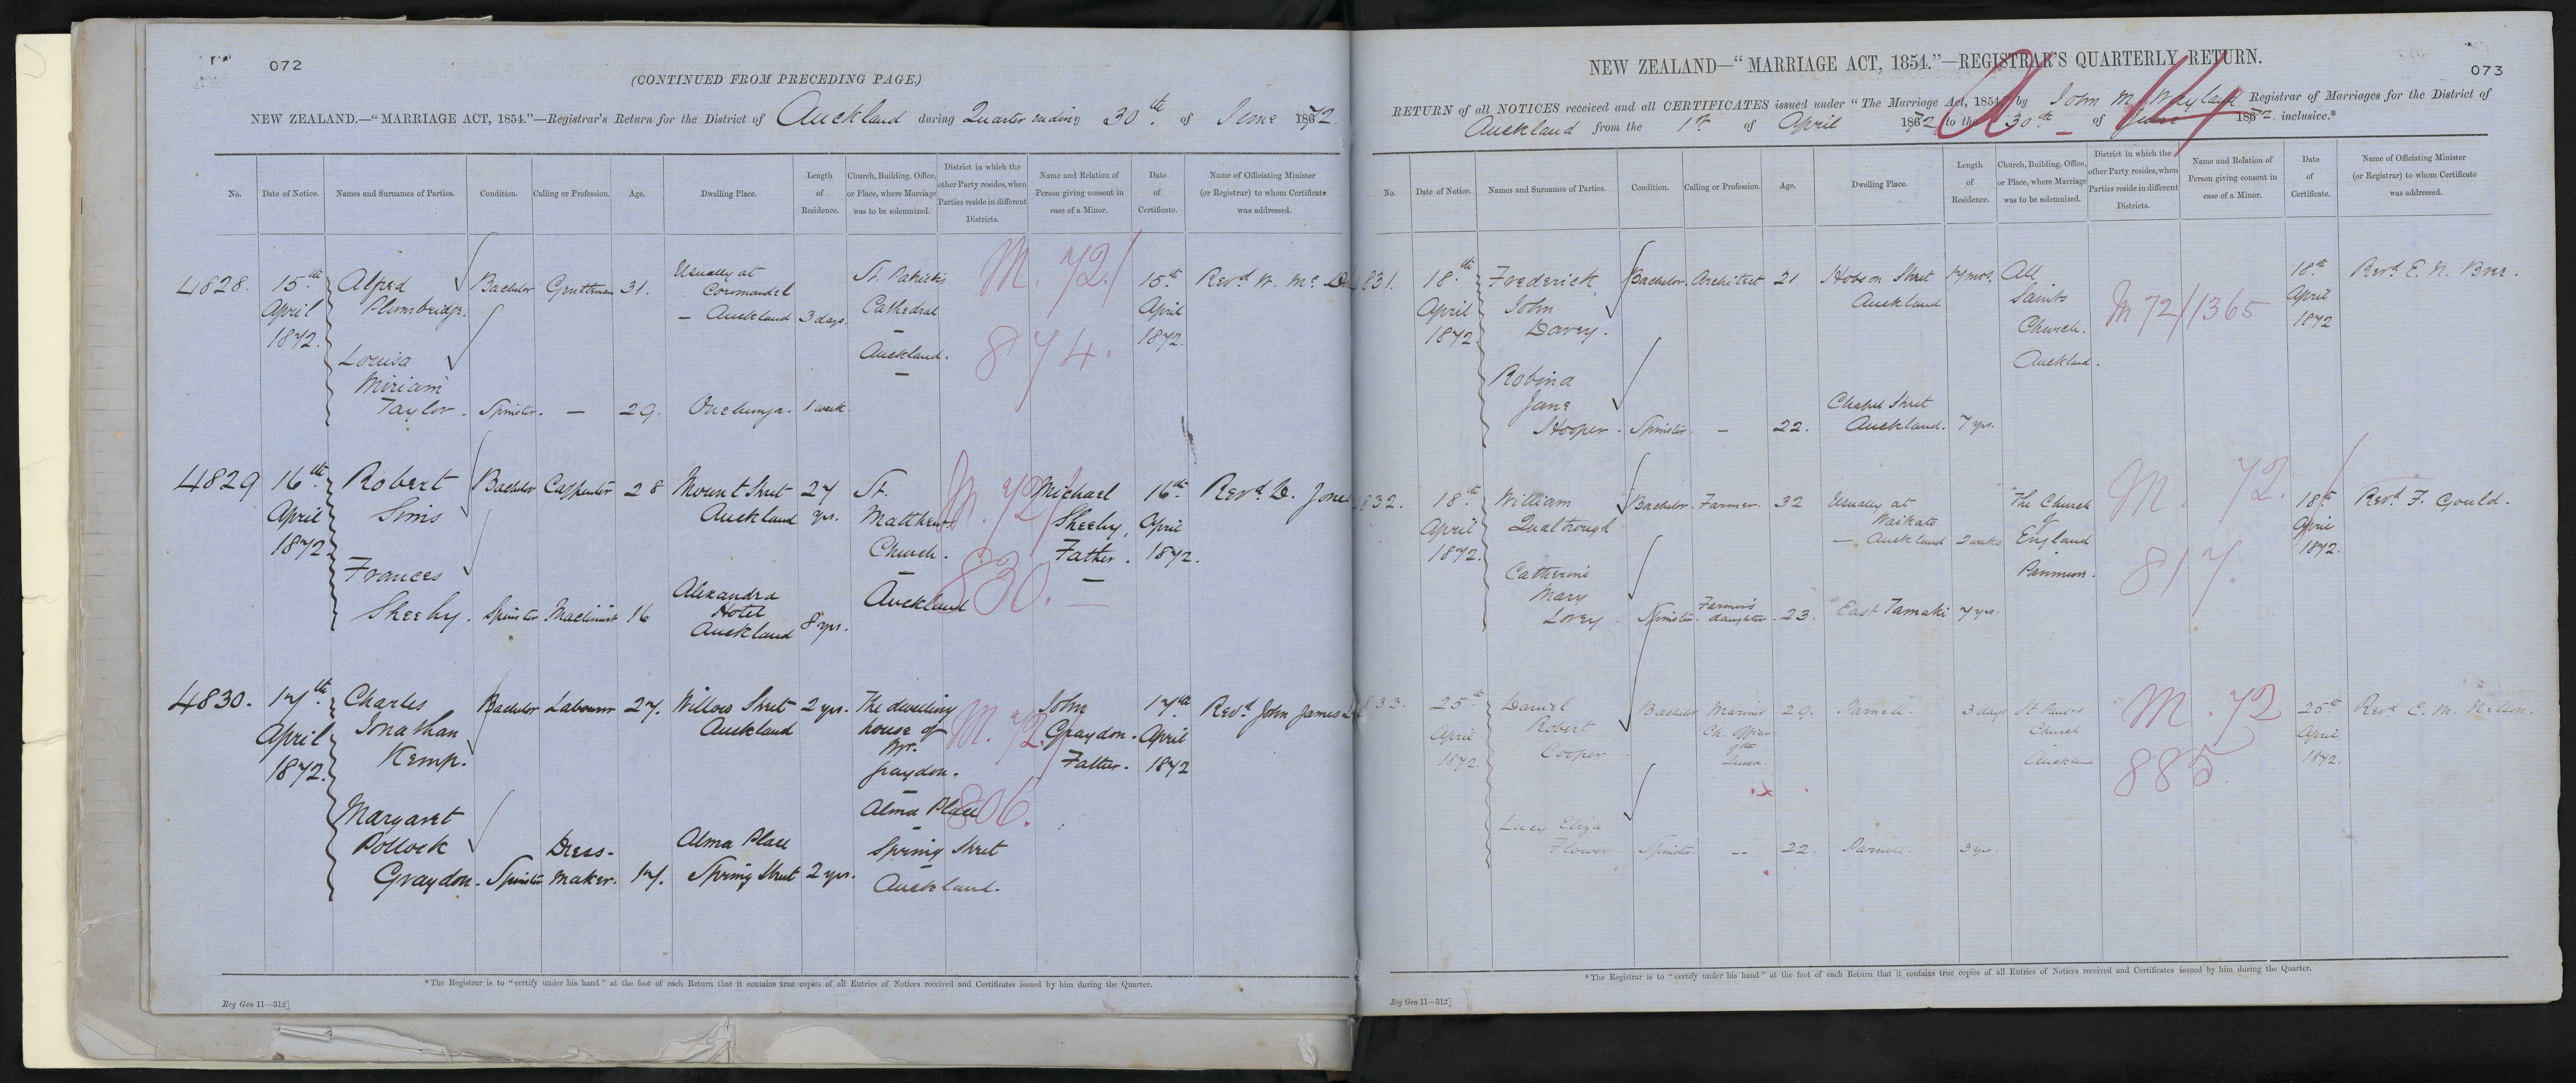 072
(CONTINUED FROM PRECEDING PAGE.)
NEW ZEALAND.—"MARRIAGE ACT, 1854."—Registrar's Return for the District of Auckland during Quarter ending 30th of June 1872.
No. Date of Notice. Names and Surnames of Parties. Condition. Calling or Profession. Age. Dwelling Place. Length of Residence. Church, Building, Office, or Place, where Marriage was to be solemnized. District in which the other Party resides, when Parties reside in different Districts. Name and Relation of Person giving consent in case of a Minor. Date of Certificate. Name of Officiating Minister (or Registrar) to whom Certificate was addressed.
4828. 15th April 1872. Alfred Plumbridge. Bachelor Gentleman 31. Usually at Coromandel — Auckland 3 days. St. Patricks Cathedral — Auckland. — M. 72/ 874. 15th April 1872. Revd W. Mc
Louisa Miriam Taylor. Spinster. — 29. Onehunga. 1 week.
4829 16th April 1872. Robert Sims Bachelor Carpenter 28 Mount Street Auckland 27 yrs. St. Matthews Church. — Auckland M. 72/ 830. Michael Sheehy, Father. — 16th April 1872. Revd D. Jone
Frances Sheehy. Spinster Machinist 16 Alexandra Hotel Auckland 8 yrs.
4830. 17th April 1872. Charles Jonathan Kemp. Bachelor Labourer 27. Willow Street Auckland 2 yrs. The dwelling house of Mr. Graydon. — Alma Place — Spring Street — Auckland. M. 72/ 806. John Graydon. Father. 17th April 1872 Revd John James
Margaret Pollock Graydon. Spinster Dress-maker. 17. Alma Place Spring Street 2 yrs.
*The Registrar is to "certify under his hand" at the foot of each Return that it contains true copies of all Entries of Notices received and Certificates issued by him during the Quarter.
Reg Gen 11—312]
NEW ZEALAND—"MARRIAGE ACT, 1854."—REGISTRAR'S QUARTERLY RETURN.
073
RETURN of all NOTICES received and all CERTIFICATES issued under "The Marriage Act, 1854," by John M. Wayland Registrar of Marriages for the District of
Auckland from the 1st of April 1872 to the 30th of June 1872 inclusive.*
No. Date of Notice. Names and Surnames of Parties. Condition. Calling or Profession. Age. Dwelling Place. Length of Residence. Church, Building, Office, or Place, where Marriage was to be solemnized. District in which the other Party resides, when Parties reside in different Districts. Name and Relation of Person giving consent in case of a Minor. Date of Certificate. Name of Officiating Minister (or Registrar) to whom Certificate was addressed.
831. 18th April 1872 Frederick John Davey. Bachelor. Architect 21 Hobson Street Auckland 17 mos. All Saints Church. Auckland. M 72/1365 18th April 1872 Revd E. N. Bree.
Robina Jane Hooper. Spinster. — 22. Chapel Street Auckland. 7 yrs.
832. 18th April 1872. William Qualtrough Bachelor. Farmer. 32 Usually at Waikato — Auckland 2 weeks The Church of England Panmure. M. 72/ 817. 18th April 1872. Revd F. Gould.
Catherine Mary Lovey. Spinster. Farmer's daughter. 23. East Tamaki 7 yrs.
833. 25th April 1872. Daniel Robert Cooper. Bachelor Marine 29. Parnell. 3 days St Paul's Church Auckland M. 72 885 25th April 1872. Revd C. M. Nelson.
Lucy Eliza Flower. Spinster. — 22. Parnell. 3 yrs.
*The Registrar is to "certify under his hand" at the foot of each Return that it contains true copies of all Entries of Notices received and Certificates issued by him during the Quarter.
Reg Gen 11—312]